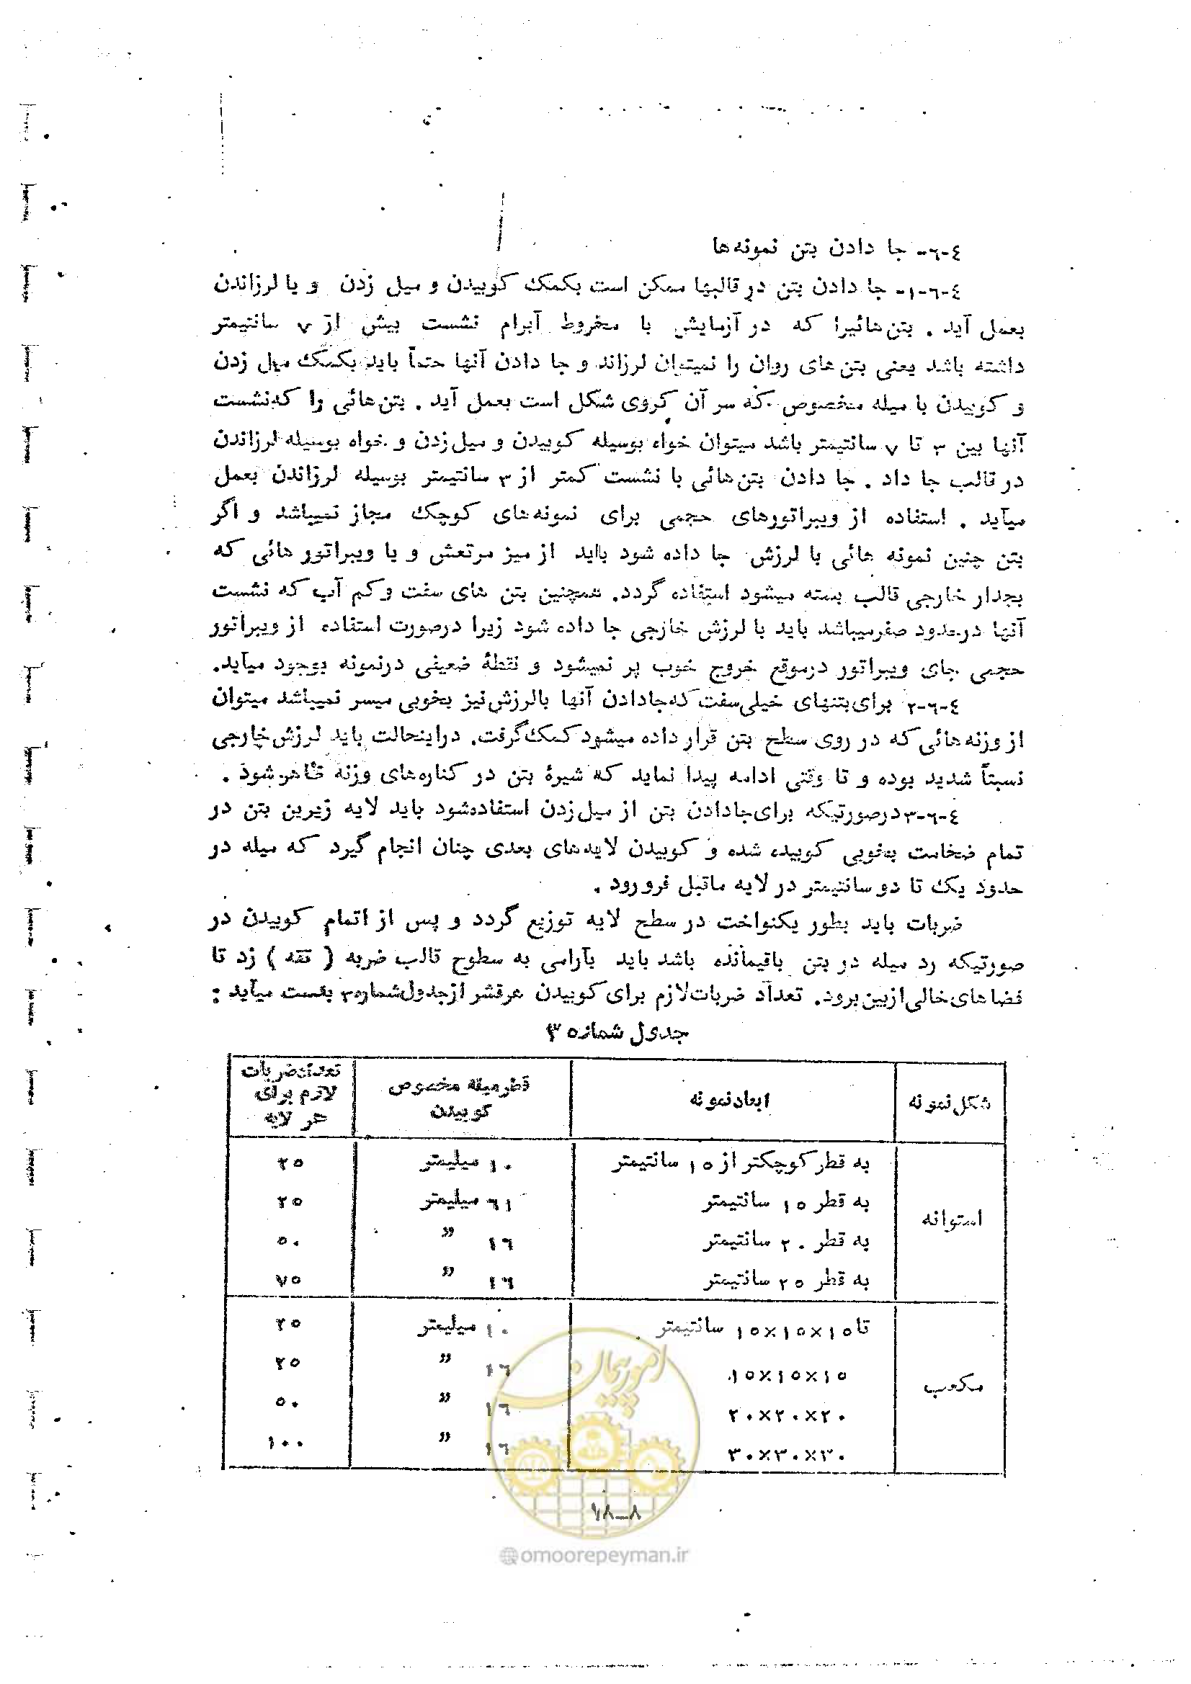 ٤-٦- جا دادن بتن نمونه‌ها
٤-٦-١- جا دادن بتن در قالبها ممکن است بکمک کوبیدن و میل زدن و یا لرزاندن
بعمل آید . بتن‌هائیرا که در آزمایش با مخروط آبرام نشست بیش از ۷ سانتیمتر
داشته باشد یعنی بتن های روان را نمیتوان لرزاند و جا دادن آنها حتماً باید بکمک میل زدن
و کوبیدن با میله مخصوص که سر آن کروی شکل است بعمل آید . بتن‌هائی را که‌نشست
آنها بین ۳ تا ۷ سانتیمتر باشد میتوان خواه بوسیله کوبیدن و میل‌زدن و خواه بوسیله لرزاندن
در قالب جا داد . جا دادن بتن‌هائی با نشست کمتر از ۳ سانتیمتر بوسیله لرزاندن بعمل
میآید . استفاده از ویبراتورهای حجمی برای نمونه‌های کوچک مجاز نمیباشد و اگر
بتن چنین نمونه هائی با لرزش جا داده شود باید از میز مرتعش و یا ویبراتور هائی که
بجدار خارجی قالب بسته میشود استفاده گردد. همچنین بتن های سفت وکم آب که نشست
آنها درحدود صفرمیباشد باید با لرزش خارجی جا داده شود زیرا درصورت استفاده از ویبراتور
حجمی جای ویبراتور درموقع خروج خوب پر نمیشود و نقطهٔ ضعیفی درنمونه بوجود میآید.
٤-٦-۲ برای‌بتنهای خیلی‌سفت که‌جادادن آنها بالرزش‌نیز بخوبی میسر نمیباشد میتوان
از وزنه هائی‌که در روی سطح بتن قرار داده میشود کمک‌گرفت. دراینحالت باید لرزش‌خارجی
نسبتاً شدید بوده و تا وقتی ادامه پیدا نماید که شیرهٔ بتن در کناره‌های وزنه ظاهر شود .
٤-٦-۳درصورتیکه برای‌جادادن بتن از میل‌زدن استفاده‌شود باید لایه زیرین بتن در
تمام ضخامت بخوبی کوبیده شده و کوبیدن لایه‌های بعدی چنان انجام گیرد که میله در
حدود یک تا دو سانتیمتر در لایه ماقبل فرو رود .
ضربات باید بطور یکنواخت در سطح لایه توزیع گردد و پس از اتمام کوبیدن در
صورتیکه رد میله در بتن باقیمانده باشد باید بآرامی به سطوح قالب ضربه ( تقه ) زد تا
فضاهای‌خالی‌ازبین‌برود. تعداد ضربات‌لازم برای‌کوبیدن هرقشر ازجدول‌شماره۳ بدست میآید :
جدول شماره ۳
شکل نمونه | ابعادنمونه | قطرمیله مخصوص کوبیدن | تعدادضربات لازم برای هر لایه
استوانه | به قطرکوچکتر از ۱٥ سانتیمتر | ۱۰ میلیمتر | ۲٥
به قطر ۱٥ سانتیمتر | ٦۱ میلیمتر | ۲٥
به قطر ۲۰ سانتیمتر | ۱٦ " | ٥۰
به قطر ۲٥ سانتیمتر | ۱٦ " | ۷٥
مکعب | تا ۱٥×۱٥×۱٥ سانتیمتر | ۱۰ میلیمتر | ۲٥
۱٥×۱٥×۱٥ | ۱٦ " | ۲٥
۲۰×۲۰×۲۰ | ۱٦ " | ٥۰
۳۰×۳۰×۳۰ | ۱٦ " | ۱۰۰
امور پیمان
۸-۷۸
@omoorepeyman.ir